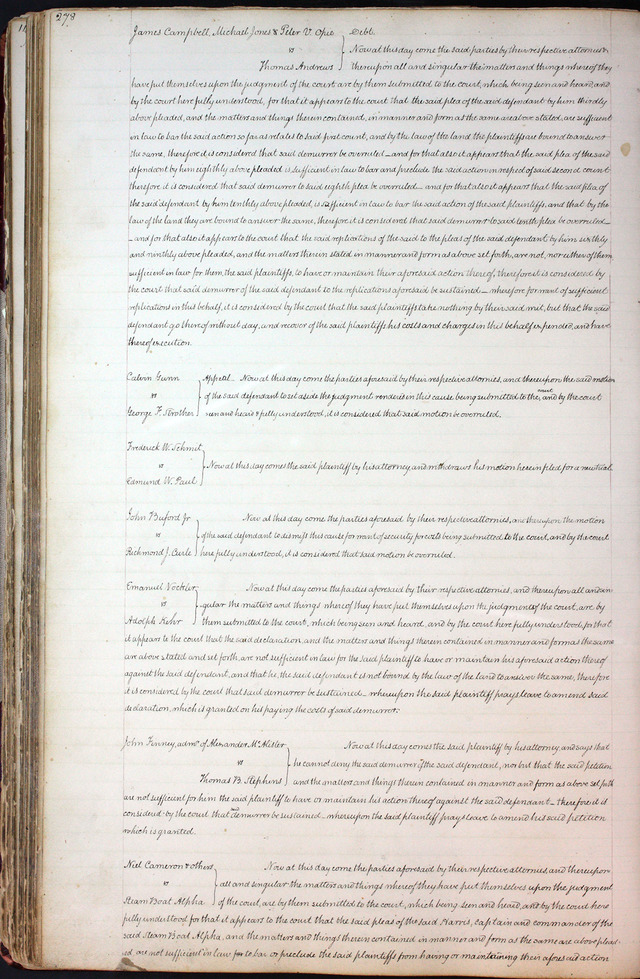 278
James Campbell, Michael Jones & Peter V. Opie } Debt.
vs } Now at this day come the said parties by their respective attornies &
Thomas Andrews } thereupon all and singular the matter and things whereof they
have put themselves upon the judgment of the court are by them submitted to the court, which being seen and heard, and
by the court here fully understood, for that it appears to the court that the said plea of the said defendant by him thirdly
above pleaded, and the matters and things therein contained, in manner and form as the same are above stated, are sufficient
in law to bar the said action so far as relates to said first count, and by the law of the land the plaintiffs are bound to answer
the same, therefore it is considered that said demurrer be overruled – and for that also it appears that the said plea of the said
defendant by him eighthly above pleaded is sufficient in law to bar and preclude the said action in respect of said second count
therefore it is considered that said demurrer to said eighth plea be overruled – and for that also it appears that the said plea of
the said defendant by him tenthly above pleaded, is sufficient in law to bar the said action of the said plaintiffs, and that by the
law of the land they are bound to answer the same, therefore it is considered that said demurrer to said tenth plea be overruled –
– and for that also it appears to the court that the said replications of the said to the pleas of the said defendant by him sixthly
and ninthly above pleaded, and the matters therein stated in manner and form as above set forth, are not, nor either of them
sufficient in law for them, the said plaintiffs, to have or maintain their aforesaid action thereof, therefore it is considered by
the court that said demurrer of the said defendant to the replications aforesaid be sustained – wherefore for want of sufficient
replications in this behalf, it is considered by the court that the said plaintiffs take nothing by their said writ, but that the said
defendant go thereof without day, and recover of the said plaintiffs his costs and charges in this behalf expended, and have
thereof execution.
Calvin Gunn } Appeal – Now at this day come the parties aforesaid by their respective attornies, and thereupon the said motion
vs } of the said defendant to set aside the judgment rendered in this cause being submitted to the court, and by the court
George F. Strother } seen and heard & fully understood, it is considered that said motion be overruled.
Frederick W. Schmit
vs } Now at this day comes the said plaintiff by his attorney and withdraws his motion herein filed for a new trial.
Edmund W. Paul
John Buford Jr } Now at this day come the parties aforesaid by their respective attornies, and thereupon the motion
vs } of the said defendant to dismiss this cause for want of security for costs being submitted to the court, and by the court
Richmond J. Curle } here fully understood, it is considered that said motion be overruled.
Emanuel } Now at this day come the parties aforesaid by their respective attornies, and thereupon all and sin-
vs } gular the matters and things whereof they have put themselves upon the judgment of the court, are by
Adolph Kehr } them submitted to the court, which being seen and heard, and by the court here fully understood, for that
it appears to the court that the said declaration, and the matters and things therein contained in manner and form as the same
are above stated and set forth, are not sufficient in law for the said plaintiff to have or maintain his aforesaid action thereof
against the said defendant, and that he, the said defendant is not bound by the law of the land to answer the same, therefore
it is considered by the court that said demurrer be sustained – whereupon the said plaintiff prays leave to amend said
declaration, which is granted on his paying the costs of said demurrer.
John Finney, admr. of Alexander McAlister } Now at this day comes the said plaintiff by his attorney and says that
vs } he cannot deny the said demurrer of the said defendent, nor but that the said petition
Thomas B. Stephens } and the matters and things therein contained in manner and form as above set forth
are not sufficient for him the said plaintiff to have or maintain his action thereof against the said defendant – therefore it is
considered by the court that demurrer be sustained – whereupon the said plaintiff prays leave to amend his said petition
which is granted.
Niel Cameron & others } Now at this day come the parties aforesaid by their respective attornies, and thereupon
vs } all and singular the matters and things whereof they have put themselves upon the judgment
Steam Boat Alpha } of the court, are by them submitted to the court, which being seen and heard, and by the court here
fully understood for that it appears to the court that the said pleas of the said Harris, captain and commander of the
said Steam Boat Alpha, and the matters and things therein contained in manner and form as the same are above plead-
ed, are not sufficient in law for to bar or preclude the said plaintiffs from having or maintaining their aforesaid action